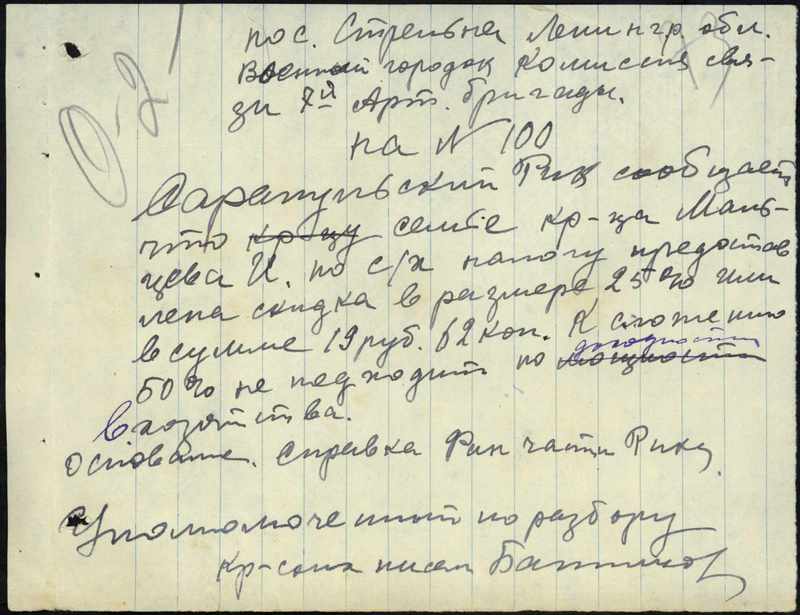 О-2
пос. Стрельна Ленингр. обл.
Военный городок Комиссия свя-
зи 7й Арт. бригады.
на N 100
Сарапульский Рик сообщает
что кр-цу семье кр-ца Маль-
цева И. по с/х налогу предостав
лена скидка в размере 25% или
в сумме 19 руб. 62 коп. К сложению
доходности
50% не подходит по мощности
в хозяйства.
Основание. Справка Фин части Рика
Уполномоченный по разбору
кр-ских писем